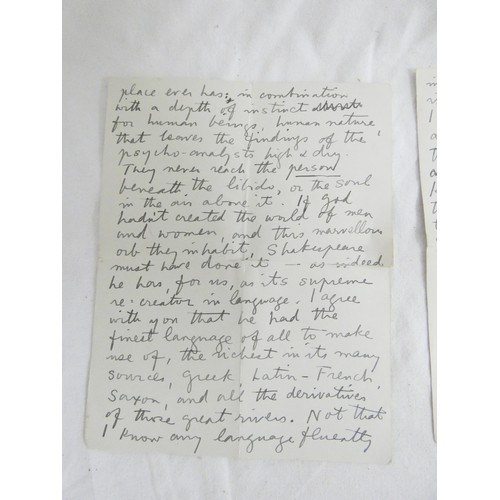 place ever has; in combination
with a depth of instinct
for human beings, human nature,
that leaves the findings of the
psycho-analysts high & dry.
They never reach the person
beneath the libido, or the soul
in the air above it. If God
hadn't created the world of men
and women, and this marvellous
orb they inhabit, Shakespeare
must have done it — as indeed
he has, for us, as its supreme
re-creator in language. I agree
with you that he had the
finest language of all to make
use of, the richest in its many
sources, Greek, Latin-French,
Saxon, and all the derivatives
of those great rivers. Not that
I know any language fluently